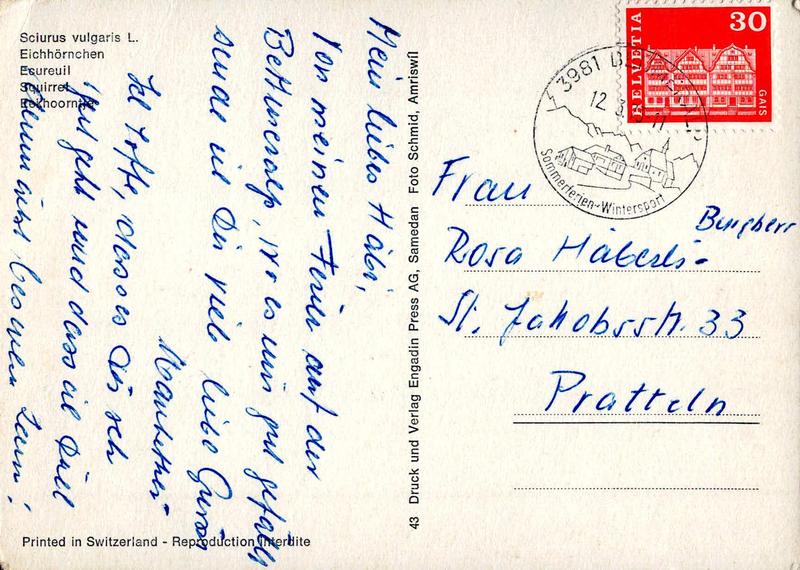 Sciurus vulgaris L.
Eichhörnchen
Ecureuil
Squirrel
Eekhoorntje
Mein liebes Häbi,
Von meinen Ferien auf der
Bettmeralp, wo es mir gut gefällt
sende ich Dir viele liebe Grüsse
Ich hoffe, dass es Dir auch
gut geht und dass ich Dich
bald
Printed in Switzerland - Reproduction interdite
43 Druck und Verlag Engadin Press AG, Samedan Foto Schmid, Amriswil
HELVETIA
30
GAIS
3981
12. 3.
Sommerferien-Wintersport
Frau
Rosa Häberli-
St. Jakobsstr. 33
Pratteln